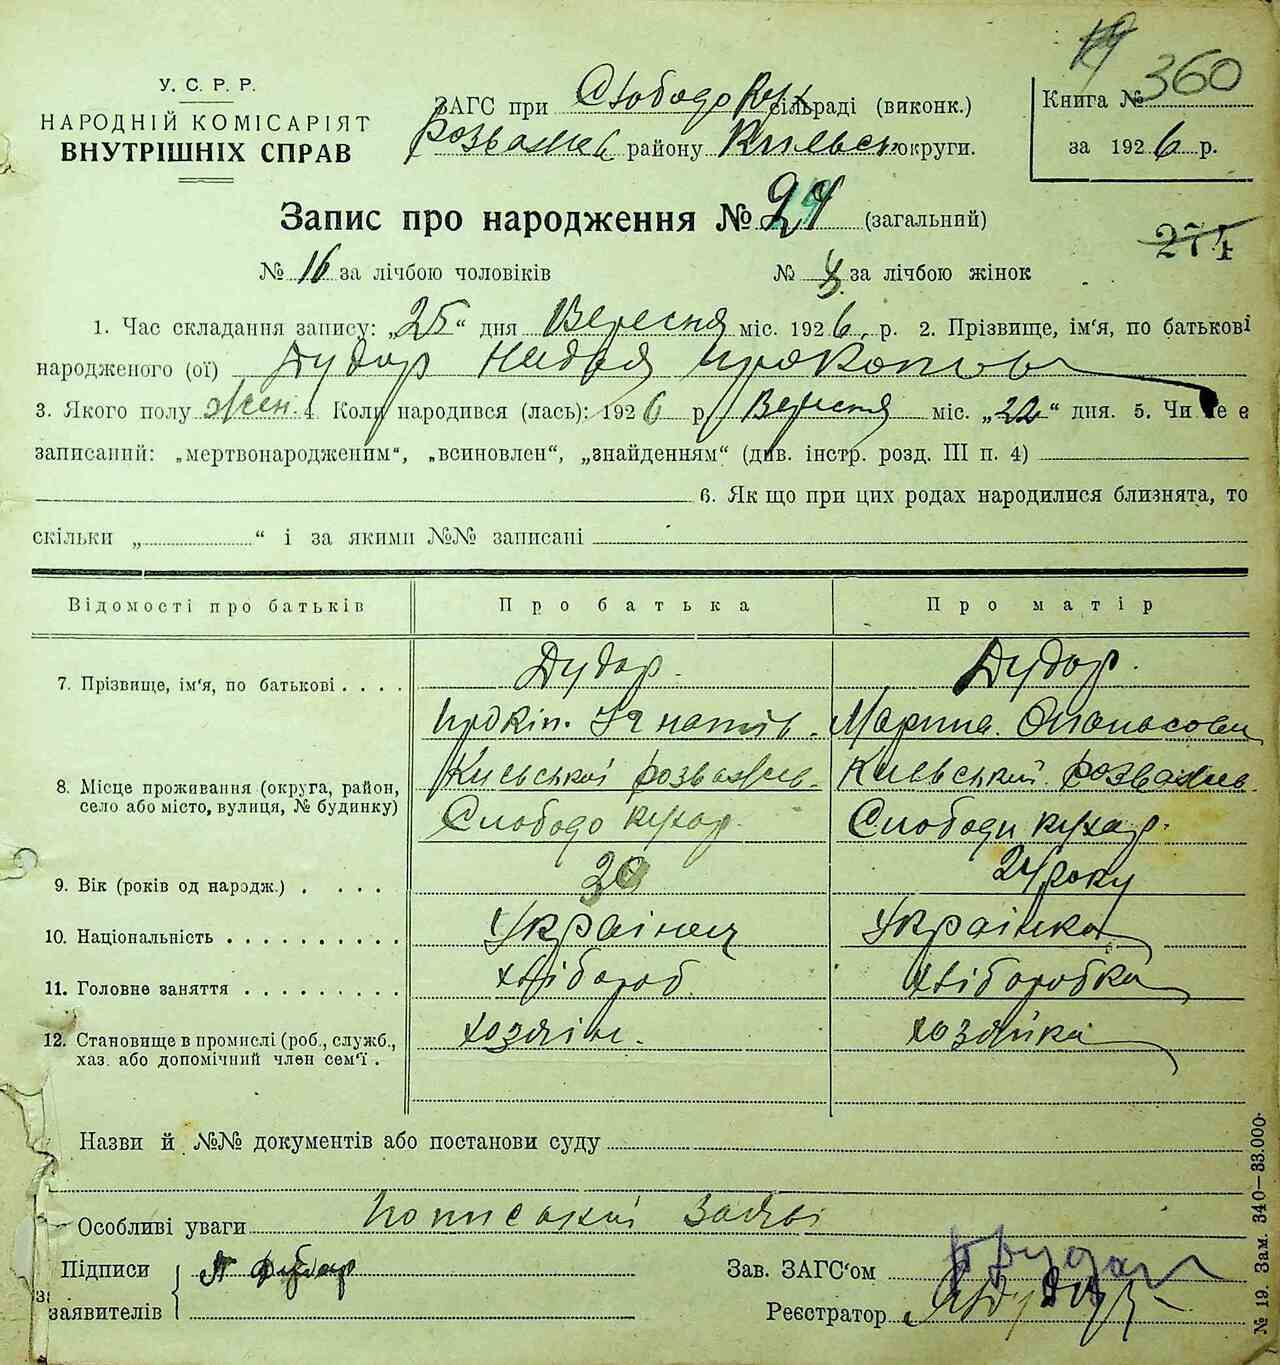 У. С. Р. Р.
НАРОДНІЙ КОМІСАРІЯТ
ВНУТРІШНІХ СПРАВ
ЗАГС при Слободо Кух сільраді (виконк.)
Розважів району Київськ округи.
Книга № 360
за 1926 р.
Запис про народження № 24 (загальний)
274
№ 16 за лічбою чоловіків № 8 за лічбою жінок
1. Час складання запису: „25“ дня Вересня міс. 1926 р. 2. Прізвище, ім'я, по батькові
народженого (ої) Дудар Надея Прокопів
3. Якого полу жен. 4. Коли народився (лась): 1926 р. Вересня міс. „22“ дня. 5. Чи не є
записаний: „мертвонародженим“, „всиновлен“, „знайденням“ (див. інстр. розд. III п. 4)
6. Як що при цих родах народилися близнята, то
скільки „ “ і за якими №№ записані
Відомості про батьків Про батька Про матір
7. Прізвище, ім'я, по батькові . . . . Дудар. Дудар.
Прокіп. Ігнатів. Марина. Опанасовн
8. Місце проживання (округа, район, Київської розважів. Київської. розважів.
село або місто, вулиця, № будинку) Слободо кухар. Слободи кухар.
9. Вік (років од народж.) . . . . 30 24 року
10. Національність . . . . . . . . . . Українец Українка
11. Головне заняття . . . . . . . . . Хлібороб. Хліборобка
12. Становище в промислі (роб., служб., хозяін. хозяйка
хаз. або допомічний член сем'ї .
Назви й №№ документів або постанови суду
Особливі уваги заяві
Підписи П Дудар
заявителів
Зав. ЗАГС'ом
Реєстратор
№ 19. Зам. 340—33.000.